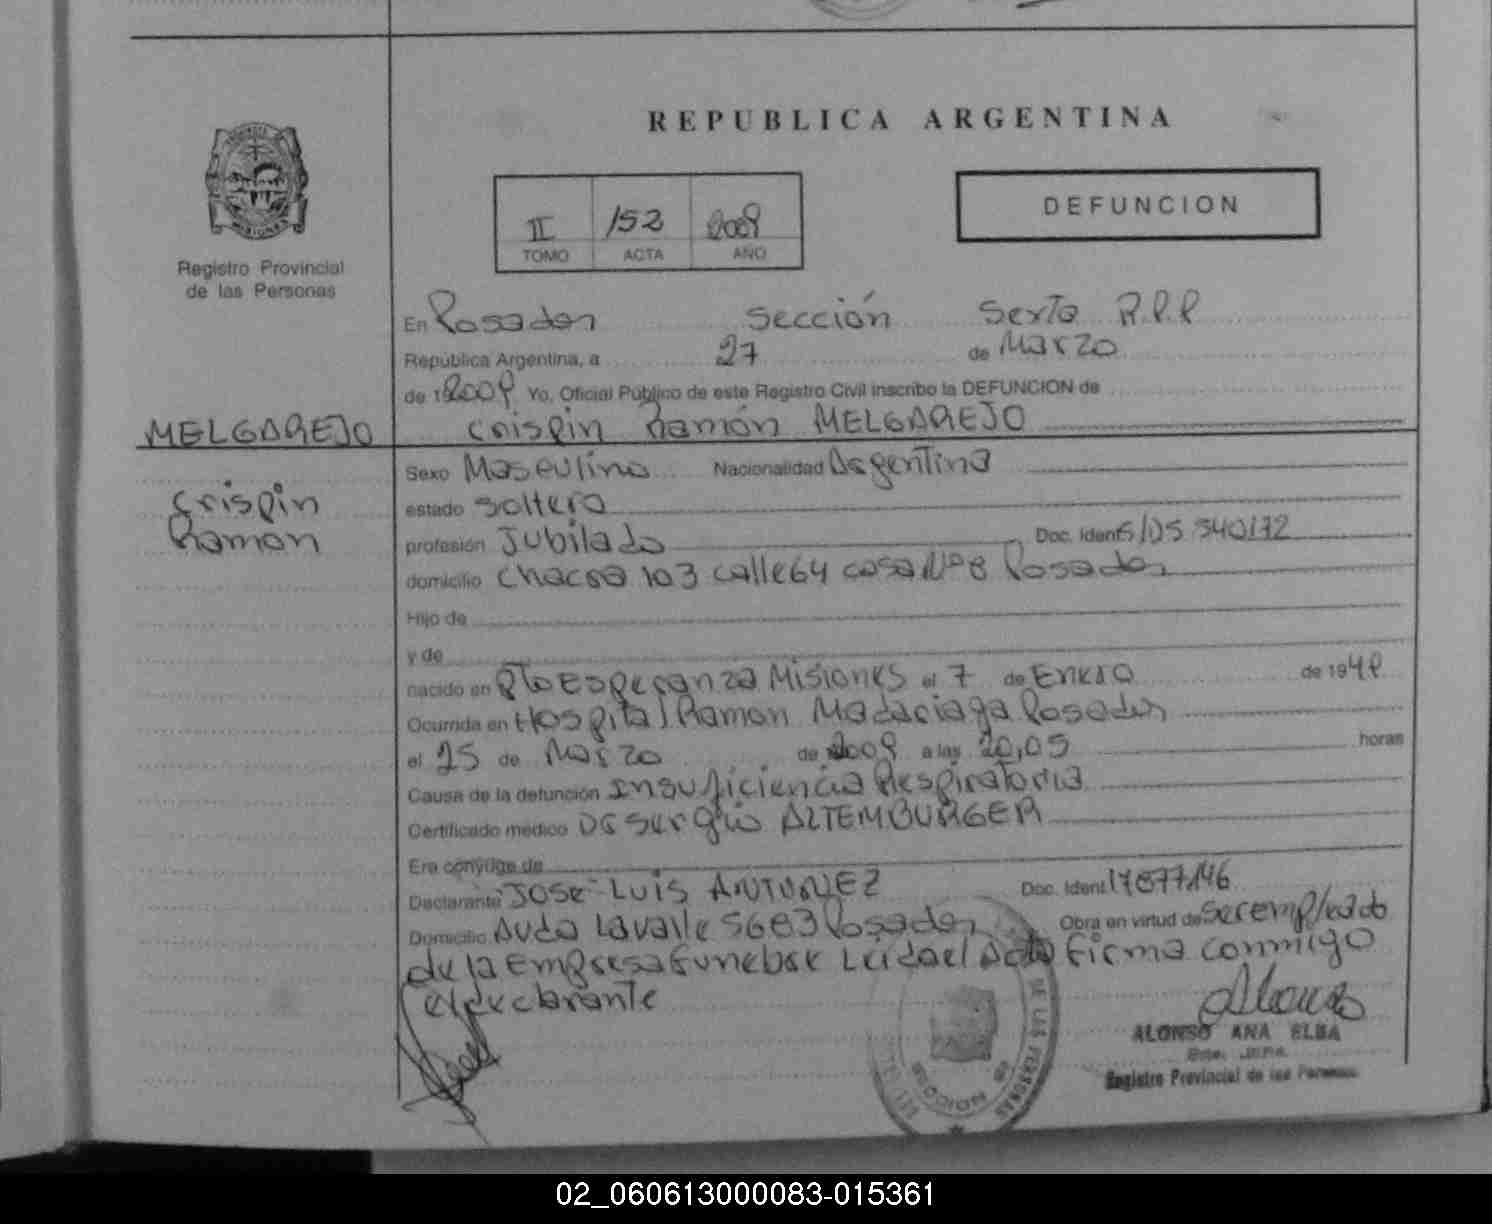 REPUBLICA ARGENTINA
MISIONES
Registro Provincial
de las Personas
II 152 2009
TOMO ACTA AÑO
DEFUNCION
En Posadas Sección Sexta R.P.P
República Argentina, a 27 de Marzo
de 2009 Yo, Oficial Público de este Registro Civil inscribo la DEFUNCION de
MELGAREJO
Crispin Ramón MELGAREJO
Crispin
Ramon
Sexo Masculino Nacionalidad Argentina
estado Soltero
profesión Jubilado Doc. Ident
domicilio Chacra 103 calle 64 casa Nº 8 Posadas
Hijo de
y de
nacido en Pto Esperanza Misiones el 7 de Enero de 194
Ocurrida en Hospital Ramon Madariaga Posadas
el 25 de Marzo de 2009 a las 20,05 horas
Causa de la defunción Insuficiencia Respiratoria
Certificado médico Dr Sergio ALTEMBURGER
Era cónyuge de
Declarante José Luis ANTUNEZ Doc. Ident 17877146
Domicilio Avda Lavalle 5683 Posadas Obra en virtud de Ser empleado
de la Empresa Funebre Leida el Acta Firma conmigo
el declarante
ALONSO ANA ELBA
Registro Provincial de las Personas
DE LAS PERSONAS
02_060613000083-015361